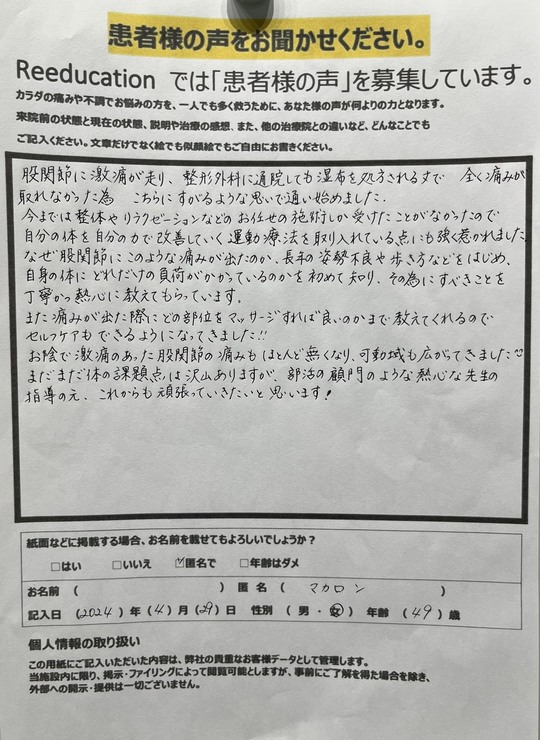 患者様の声をお聞かせください。
Reeducation では「患者様の声」を募集しています。
カラダの痛みや不調でお悩みの方を、一人でも多く救うために、あなた様の声が何よりの力となります。
来院前の状態と現在の状態、説明や治療の感想、また、他の治療院との違いなど、どんなことでも
ご記入ください。文章だけでなく絵でも似顔絵でもご自由にお書きください。
股関節に激痛が走り、整形外科に通院しても湿布を処方されるまで 全く痛みが
取れなかった為 こちらにすがるような思いで通い始めました.
今までは整体やリラクゼーションなどのお任せの施術しか受けたことがなかったので
自分の体を自分の力で改善していく運動療法を取り入れている点にも強く惹かれました
なぜ股関節にこのような痛みが出たのか、長年の姿勢不良や歩き方などをはじめ、
自身の体にどれだけの負荷がかかっているのかを初めて知り、その為にすべきことを
丁寧かつ熱心に教えてもらっています.
また痛みが出た際にどの部位をマッサージすれば良いのかまで教えてくれるので
セルフケアもできるようになってきました!!
お陰で激痛のあった股関節の痛みもほとんど無くなり、可動域も広がってきました
まだまだ体の課題点は沢山ありますが、部活の顧問のような熱心な先生の
指導のえ、これからも頑張っていきたいと思います!
紙面などに掲載する場合、お名前を載せてもよろしいでしょうか?
□はい □いいえ ☑匿名で □年齢はダメ
お名前 ( ) 匿名 ( マカロン )
記入日 (2024) 年 (4) 月 (29) 日 性別 (男・女) 年齢 (49) 歳
個人情報の取り扱い
この用紙にご記入いただいた内容は、弊社の貴重なお客様データとして管理します。
当施設内に限り、掲示・ファイリングによって閲覧可能としますが、事前にご了解を得た場合を除き、
外部への開示・提供は一切ございません。